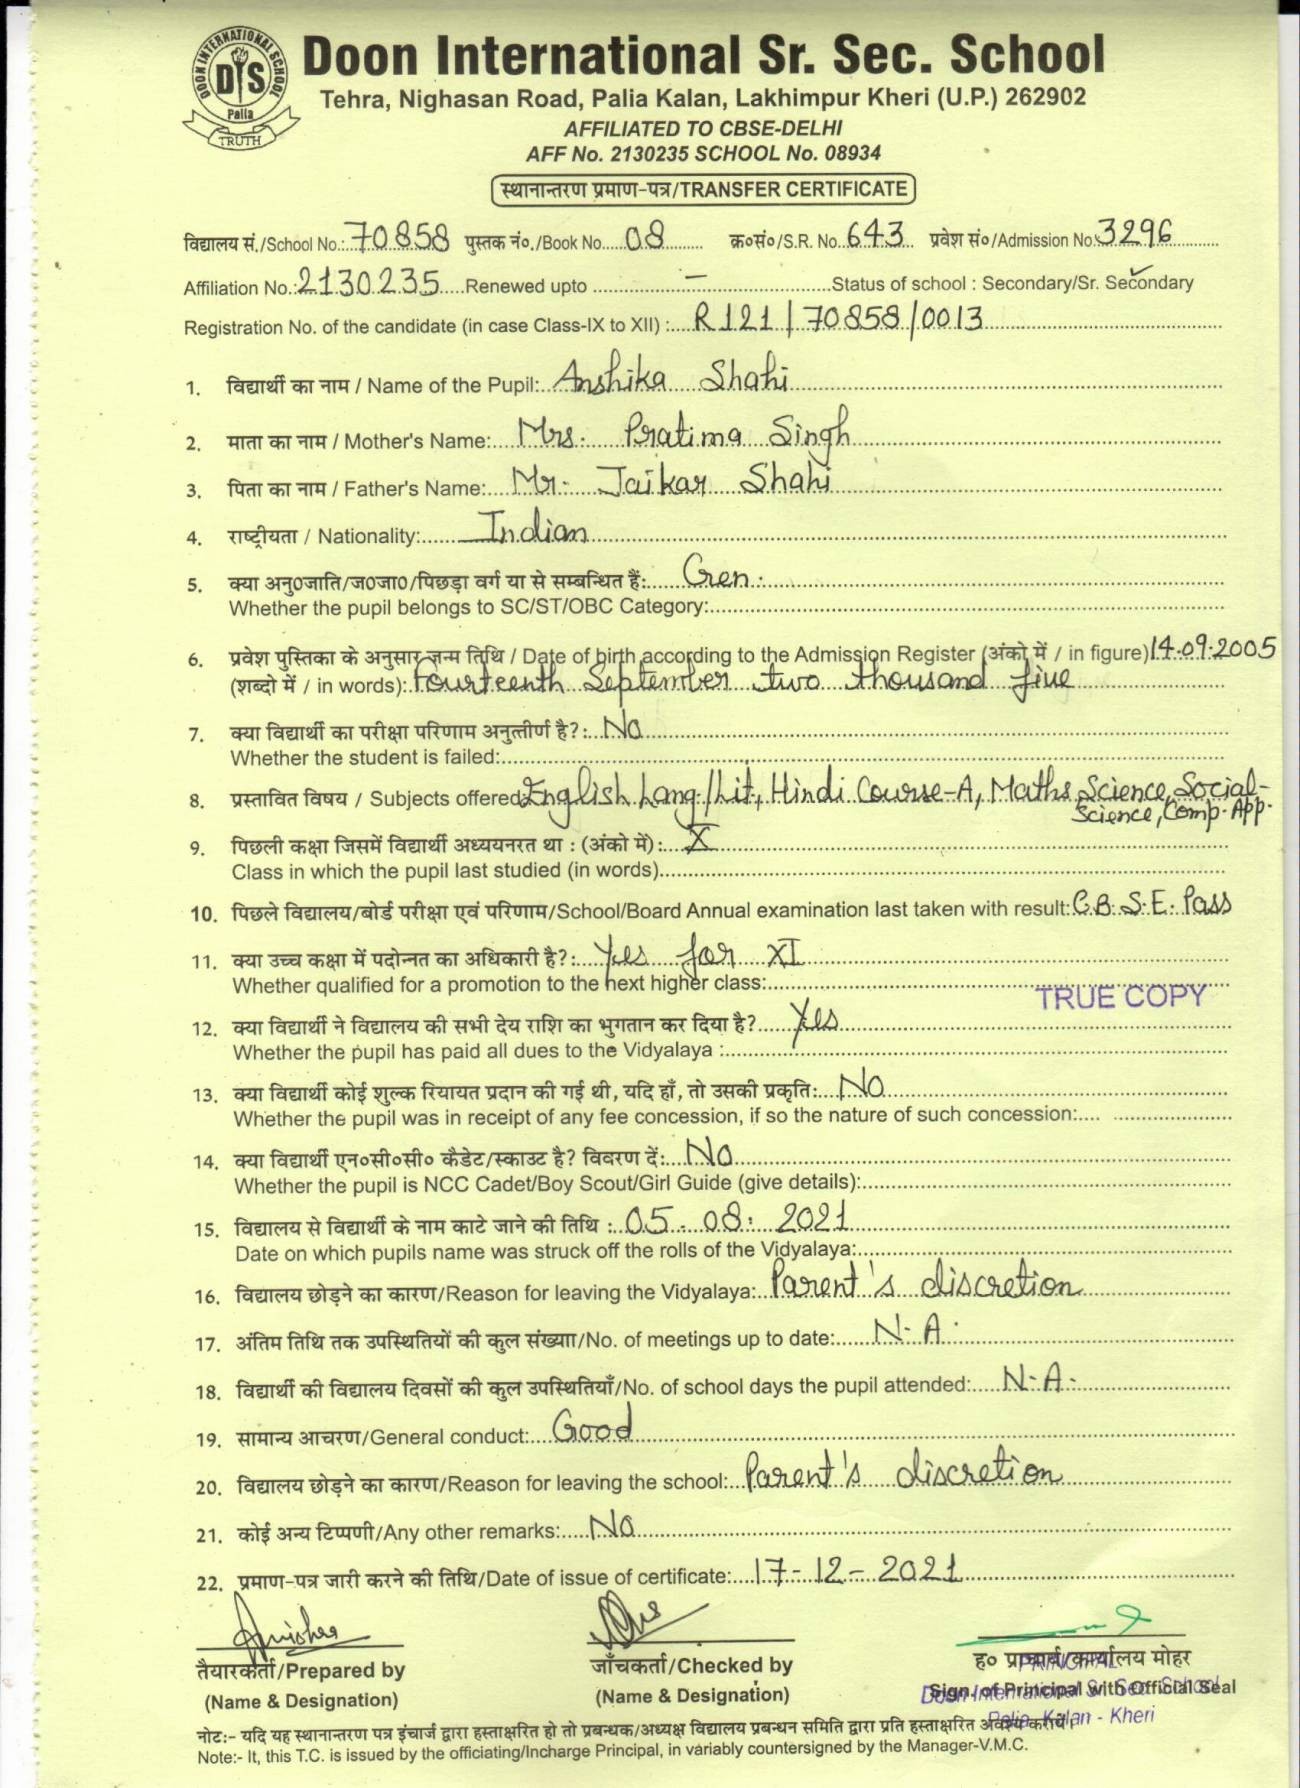 DOON INTERNATIONAL SCHOOL
DIS
Palia
TRUTH
Doon International Sr. Sec. School
Tehra, Nighasan Road, Palia Kalan, Lakhimpur Kheri (U.P.) 262902
AFFILIATED TO CBSE-DELHI
AFF No. 2130235 SCHOOL No. 08934
स्थानान्तरण प्रमाण-पत्र/TRANSFER CERTIFICATE
विद्यालय सं./School No.: 70858 पुस्तक नं०./Book No. 08 क्र०सं०/S.R. No. 643 प्रवेश सं०/Admission No. 3296
Affiliation No.: 2130235 Renewed upto — Status of school : Secondary/Sr. Secondary ✓
Registration No. of the candidate (in case Class-IX to XII) : R121/70858/0013
1. विद्यार्थी का नाम / Name of the Pupil: Anshika Shahi
2. माता का नाम / Mother's Name: Mrs. Pratima Singh
3. पिता का नाम / Father's Name: Mr. Jaikar Shahi
4. राष्ट्रीयता / Nationality: Indian
5. क्या अनु0जाति/ज0जा0/पिछड़ा वर्ग या से सम्बन्धित हैं: Gen.
Whether the pupil belongs to SC/ST/OBC Category:
6. प्रवेश पुस्तिका के अनुसार जन्म तिथि / Date of birth according to the Admission Register (अंको में / in figure) 14.09.2005
(शब्दो में / in words): Fourteenth September two thousand five
7. क्या विद्यार्थी का परीक्षा परिणाम अनुत्तीर्ण है?: No
Whether the student is failed:
8. प्रस्तावित विषय / Subjects offered: English Lang/Lit, Hindi Course-A, Maths Science, Social-
Science, Comp. App.
9. पिछली कक्षा जिसमें विद्यार्थी अध्ययनरत था : (अंको में) : X
Class in which the pupil last studied (in words)
10. पिछले विद्यालय/बोर्ड परीक्षा एवं परिणाम/School/Board Annual examination last taken with result: C.B.S.E. Pass
11. क्या उच्च कक्षा में पदोन्नत का अधिकारी है?: Yes for XI
Whether qualified for a promotion to the next higher class:
TRUE COPY
12. क्या विद्यार्थी ने विद्यालय की सभी देय राशि का भुगतान कर दिया है? Yes
Whether the pupil has paid all dues to the Vidyalaya :
13. क्या विद्यार्थी कोई शुल्क रियायत प्रदान की गई थी, यदि हाँ, तो उसकी प्रकृति: No
Whether the pupil was in receipt of any fee concession, if so the nature of such concession:
14. क्या विद्यार्थी एन०सी०सी० कैडेट/स्काउट है? विवरण दें: No
Whether the pupil is NCC Cadet/Boy Scout/Girl Guide (give details):
15. विद्यालय से विद्यार्थी के नाम काटे जाने की तिथि : 05.08.2021
Date on which pupils name was struck off the rolls of the Vidyalaya:
16. विद्यालय छोड़ने का कारण/Reason for leaving the Vidyalaya: Parent's discretion
17. अंतिम तिथि तक उपस्थितियों की कुल संख्याा/No. of meetings up to date: N.A.
18. विद्यार्थी की विद्यालय दिवसों की कुल उपस्थितियाँ/No. of school days the pupil attended: N.A.
19. सामान्य आचरण/General conduct: Good
20. विद्यालय छोड़ने का कारण/Reason for leaving the school: Parent's discretion
21. कोई अन्य टिप्पणी/Any other remarks: No
22. प्रमाण-पत्र जारी करने की तिथि/Date of issue of certificate: 17-12-2021
तैयारकर्ता/Prepared by जाँचकर्ता/Checked by ह० प्राचार्य/कार्यालय मोहर
PRINCIPAL
(Name & Designation) (Name & Designation) Sign. of Principal with Official Seal
Doon International Sr. Sec. School
Palia Kalan - Kheri
नोटः- यदि यह स्थानान्तरण पत्र इंचार्ज द्वारा हस्ताक्षरित हो तो प्रबन्धक/अध्यक्ष विद्यालय प्रबन्धन समिति द्वारा प्रति हस्ताक्षरित अवश्य करायें।
Note:- It, this T.C. is issued by the officiating/Incharge Principal, in variably countersigned by the Manager-V.M.C.